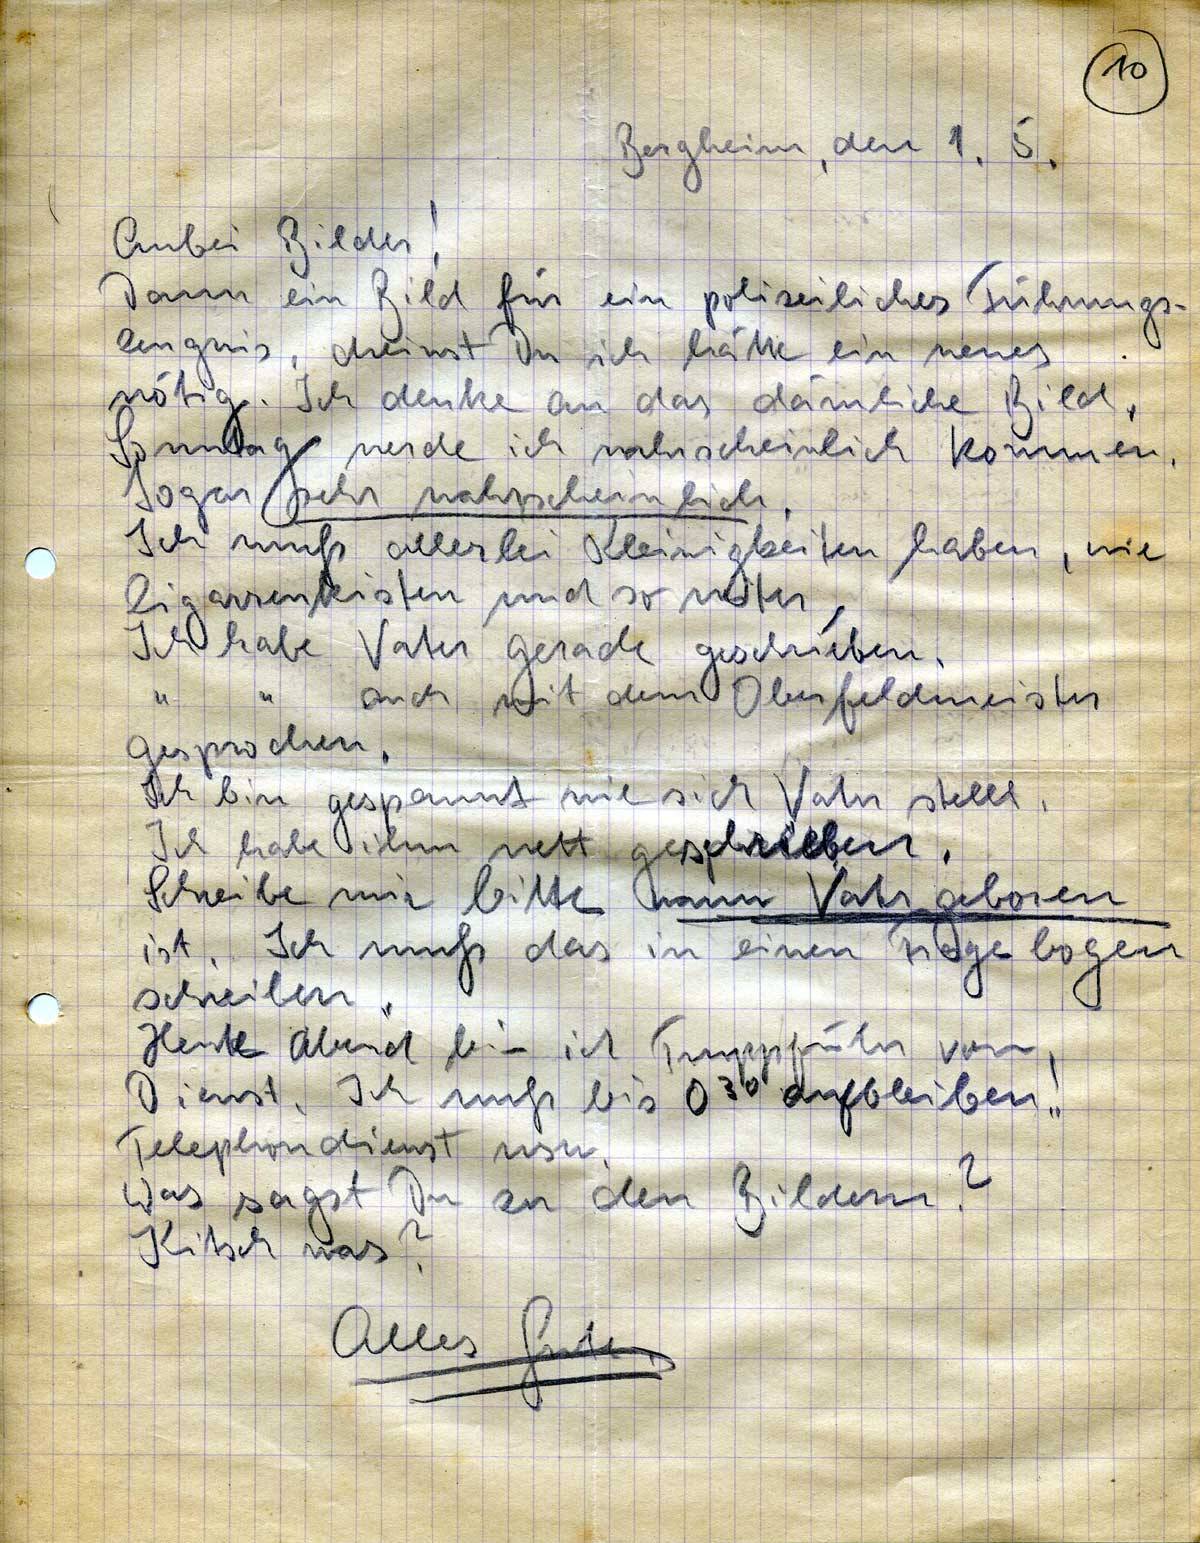 10
Bergheim, den 1. 5.
Anbei Bilder!
Dann ein Bild für ein polizeiliches Führungs-
zeugnis, meinst Du ich hätte ein neues
nötig. Ich denke an das dämliche Bild.
Sonntag werde ich wahrscheinlich kommen.
Sogar sehr wahrscheinlich.
Ich muß allerlei Kleinigkeiten haben, wie
Zigarrenkisten und so weiter.
Ich habe Vater gerade geschrieben.
" " auch mit dem Oberfeldmeister
gesprochen.
Ich bin gespannt wie sich Vater stellt.
Ich habe ihm nett geschrieben.
Schreibe mir bitte wann Vater geboren
ist. Ich muß das in einen Fragebogen
schreiben.
Heute Abend bin ich Truppführer vom
Dienst. Ich muß bis 0 30 aufbleiben!!
Telephondienst usw.
Was sagst Du zu den Bildern?
Kitsch was?
Alles Gute.